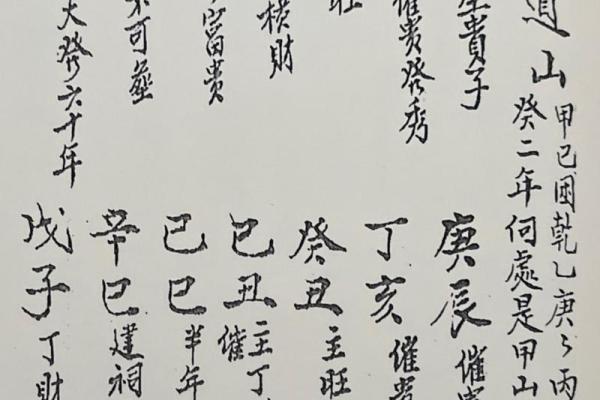 山
甲己國乾乙庚ゝ丙
癸二年何處是甲山
貴子
催貴發秀
旺
橫財
富貴
可葬
大發六十年
庚辰催貴
丁亥催貴
癸丑主旺
己丑主丁
催
己巳半年
辛巳建祠
戊子丁財